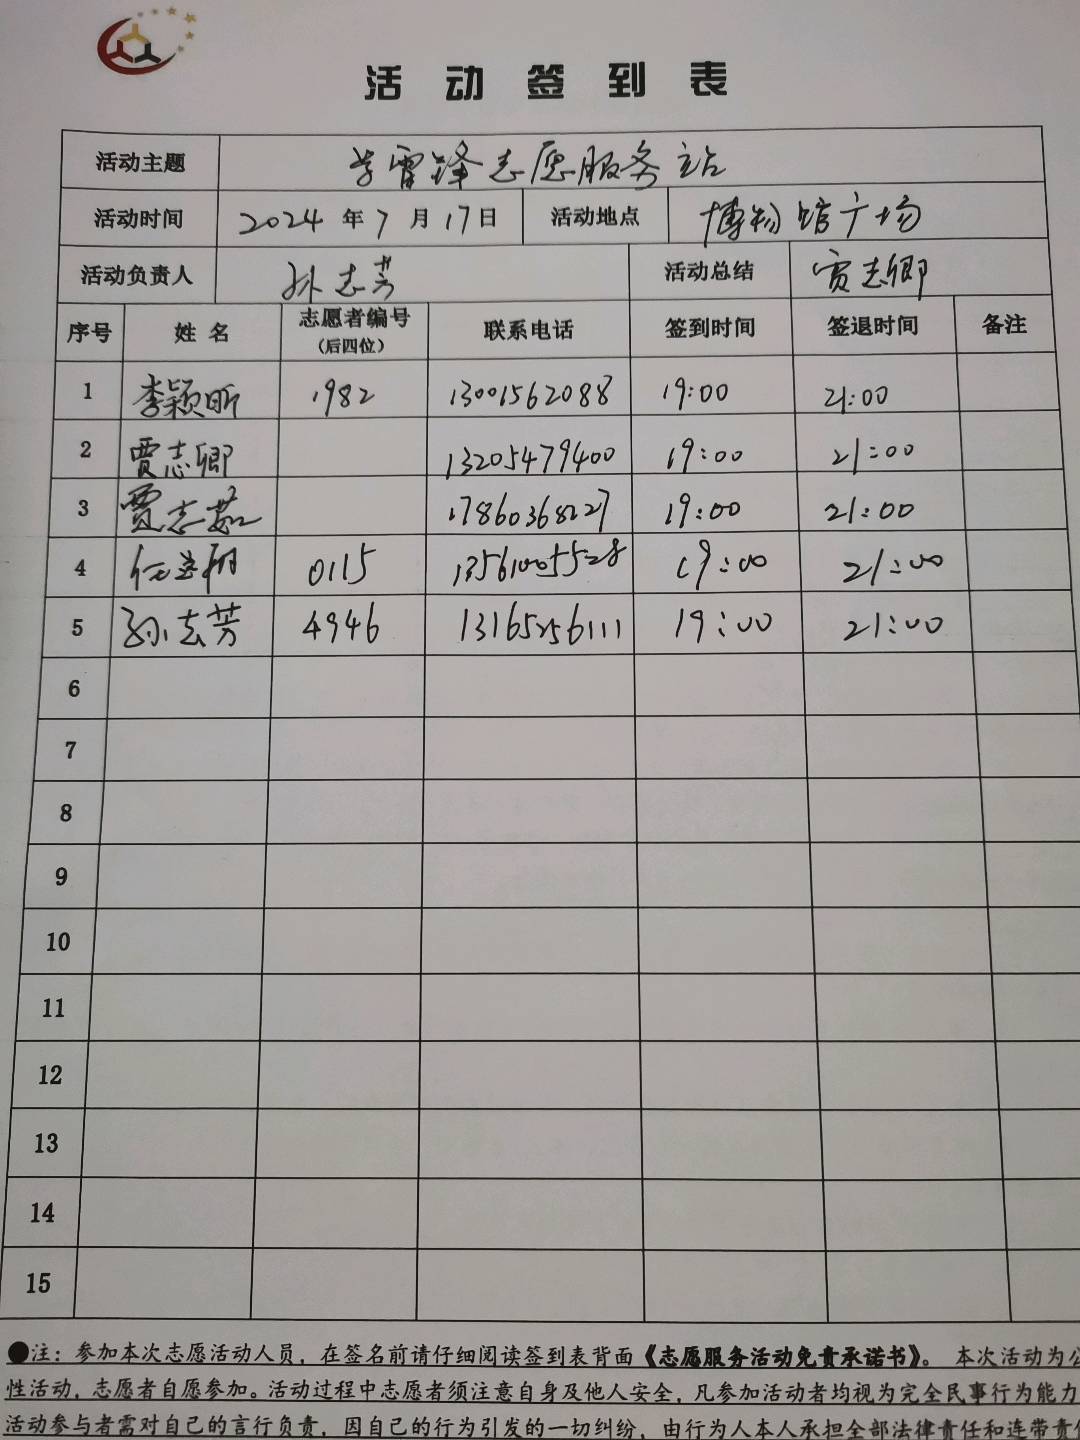 活动签到表
活动主题 学雷锋志愿服务站
活动时间 2024年7月17日 活动地点 博物馆广场
活动负责人 孙志芳 活动总结 贾志卿
序号 姓名 志愿者编号（后四位） 联系电话 签到时间 签退时间 备注
1 李颖昕 1982 13001562088 19:00 21:00
2 贾志卿 13205479400 19:00 21:00
3 贾志茹 17860368127 19:00 21:00
4 任 0115 13561005528 19:00 21:00
5 孙志芳 4946 13165256111 19:00 21:00
6
7
8
9
10
11
12
13
14
15
●注：参加本次志愿活动人员，在签名前请仔细阅读签到表背面《志愿服务活动免责承诺书》。本次活动为公
性活动，志愿者自愿参加。活动过程中志愿者须注意自身及他人安全，凡参加活动者均视为完全民事行为能力
活动参与者需对自己的言行负责，因自己的行为引发的一切纠纷，由行为人本人承担全部法律责任和连带责任